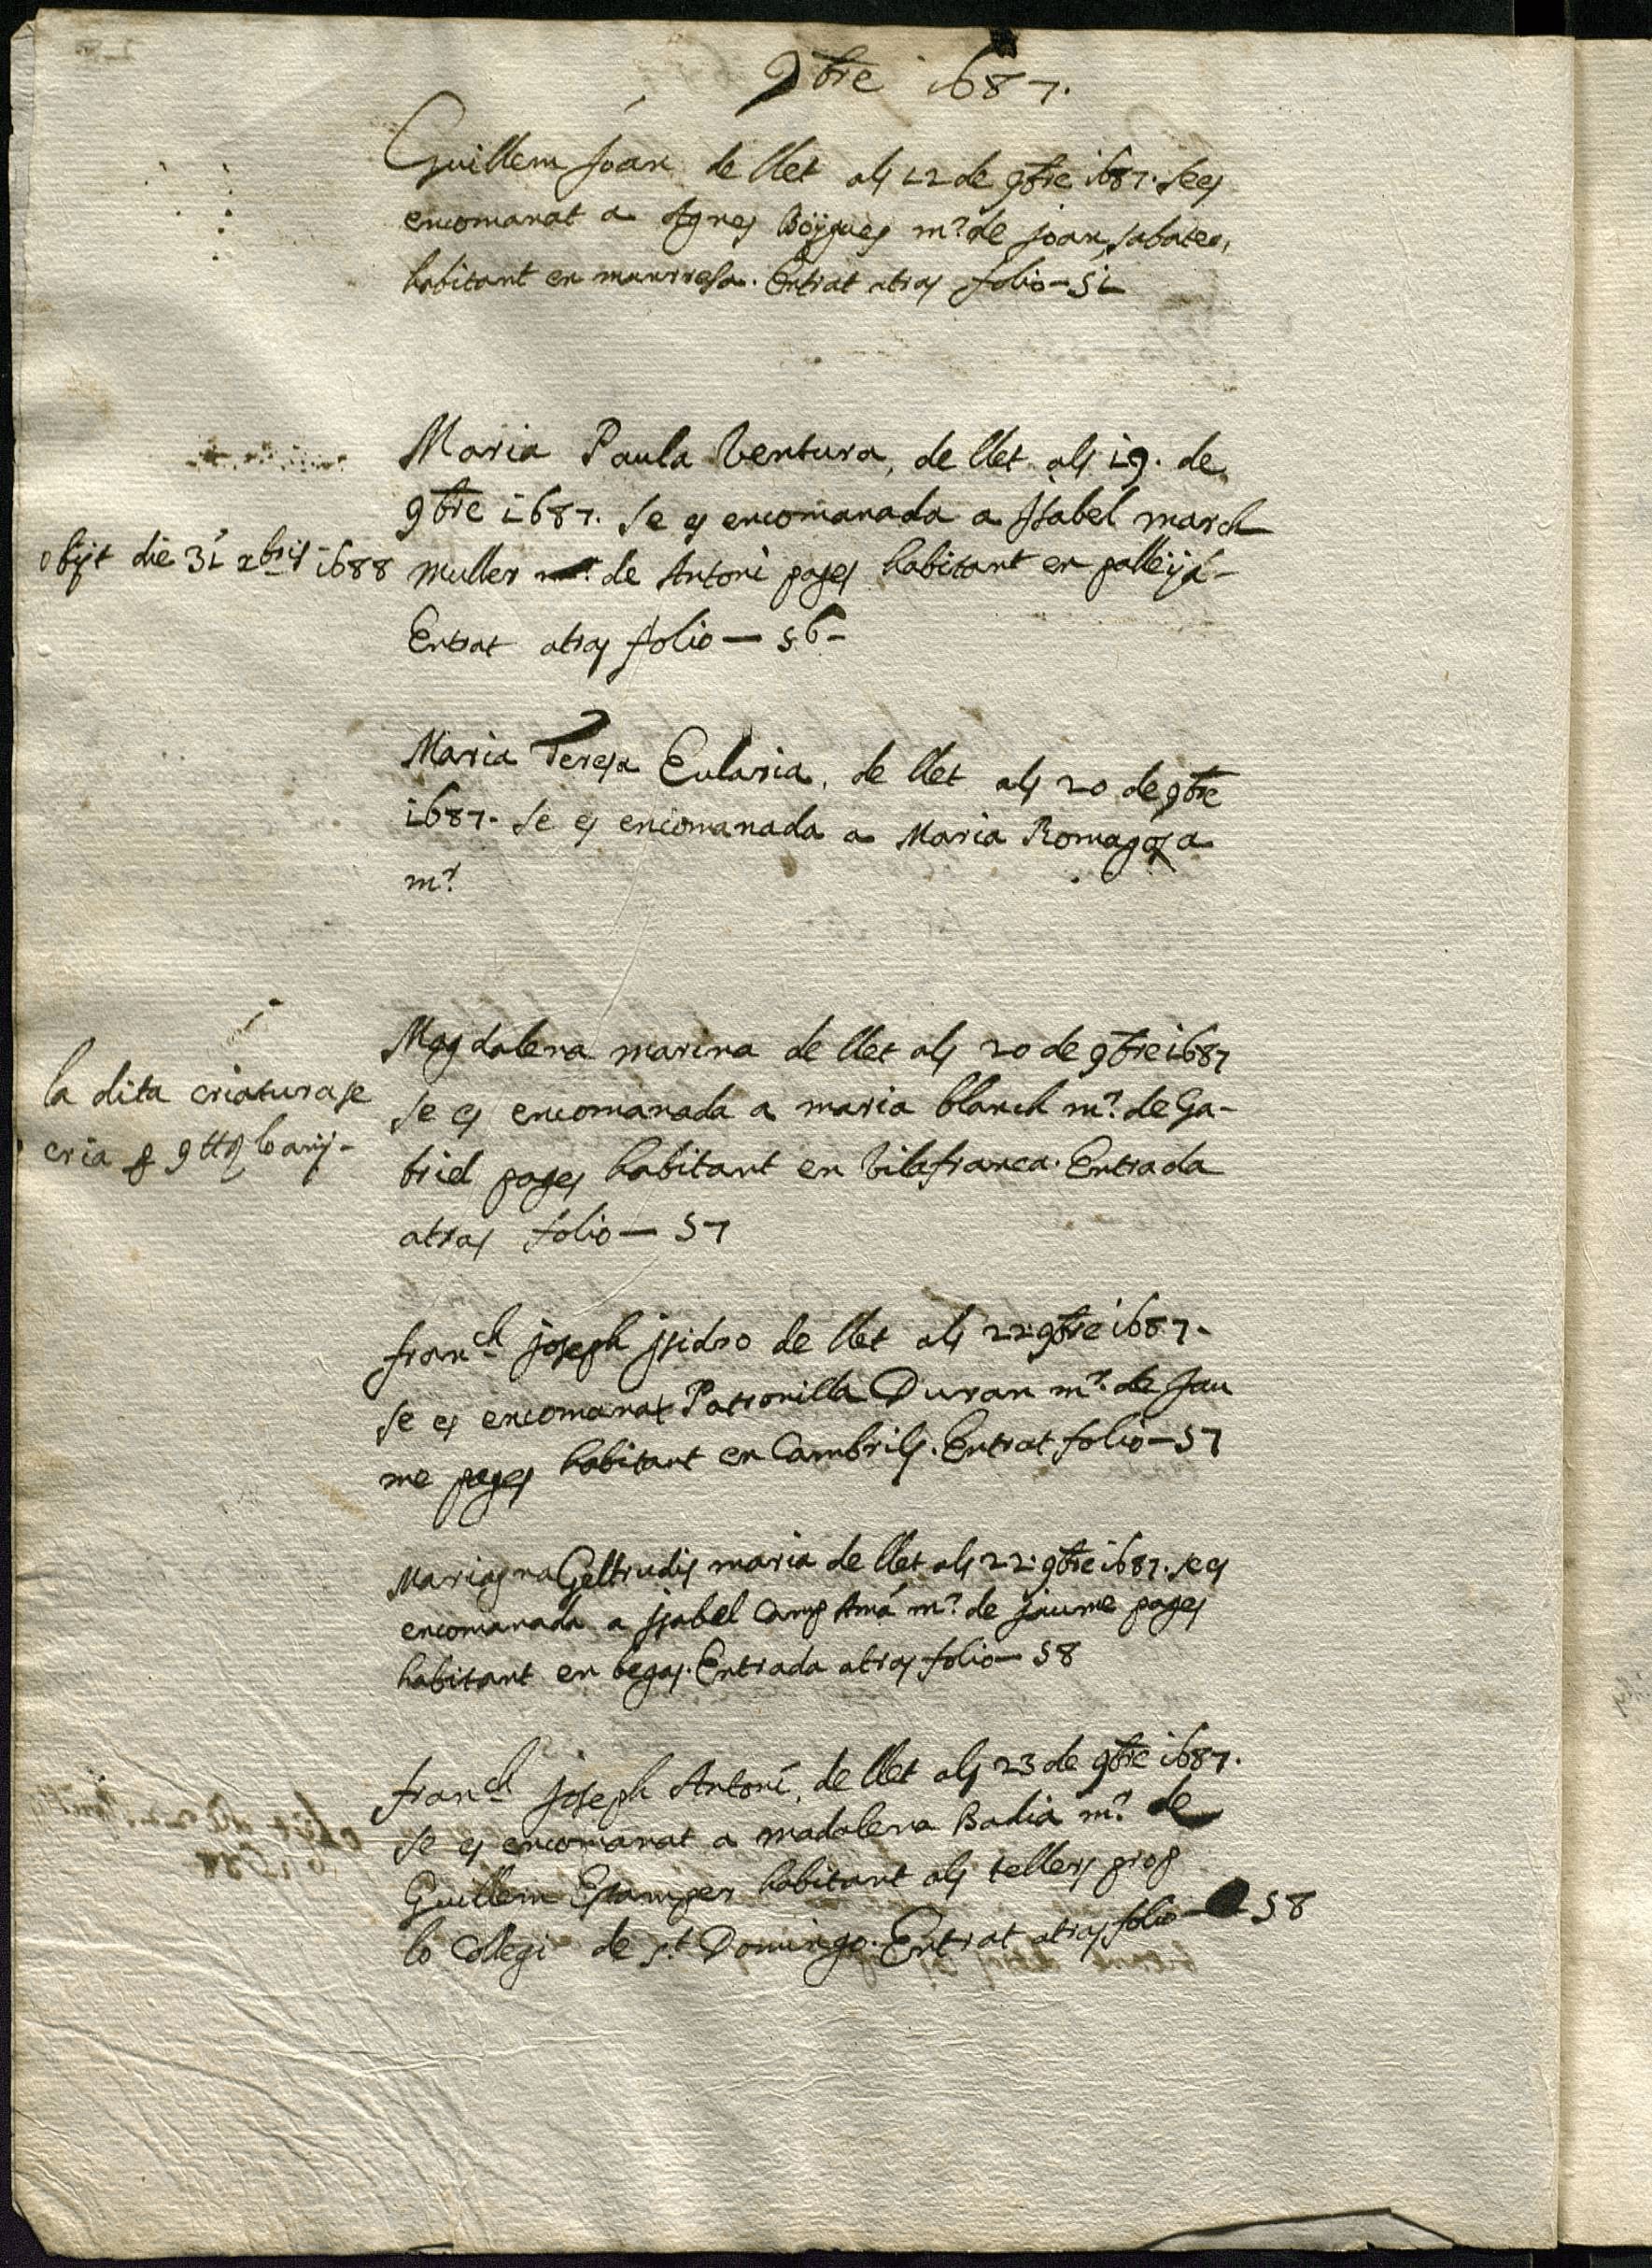 9bre 1687.
Guillem Joan de llet als 12 de 9bre 1687. se es
encomanat a Agnes m.r de joan sabater,
habitant en manrresa. Entrat atras folio - 51
Maria Paula Ventura, de llet als 19. de
9bre 1687. se es encomanada a Isabel march
obijt die 31 xbris 1688
muller de Antoni pages habitant en palleijá -
Entrat atras folio - 56 -
Maria Teresa Eularia, de llet als 20 de 9bre
1687. se es encomanada a Maria Romagosa
m.r
Magdalena marina de llet als 20 de 9bre 1687
la dita criatura se
se es encomanada a maria blanch m.r de Ga-
cria
briel pages habitant en Vilafranca. Entrada
atras folio - 57
Fran.ch joseph jsidro de llet als 22 9bre 1687.
se es encomanat Patronilla Duran m.r de Jau
me pages habitant en Cambrils. Entrat folio - 57
Mariagna Geltrudis maria de llet als 22 9bre 1687. se es
encomanada a jsabel Camp Amá m.r de jaume pages
habitant en begas. Entrada atras folio - 58
Fran.ch joseph Antoni, de llet als 23 de 9bre 1687.
se es encomanat a madalena Badia m.r de
Guillem Estamper habitant als tellers prop
lo Collegi de s.t Domingo. Entrat atras folio - 58